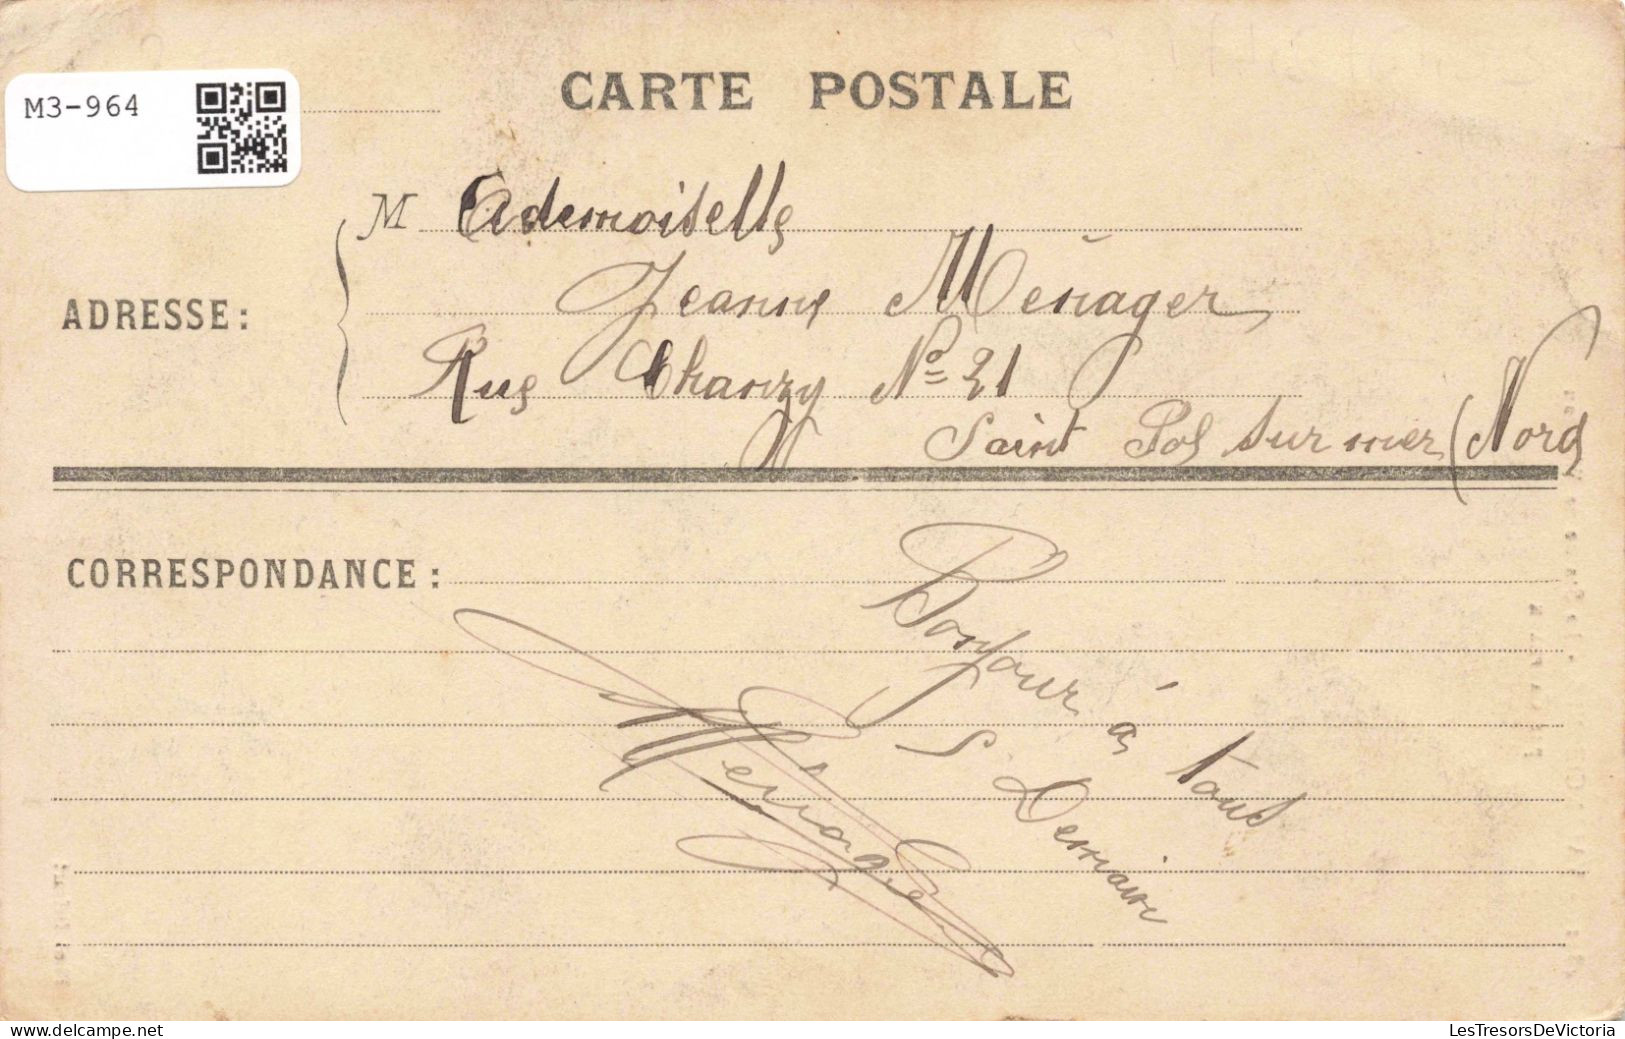 M3-964
CARTE POSTALE
M Ademoiselle
Jeanne Ménager
ADRESSE :
Rue Chanzy Nº 21
Saint Pol sur mer (Nord
CORRESPONDANCE :
Bonjour à tous
Demain
Ménager
LesTresorsDeVictoria